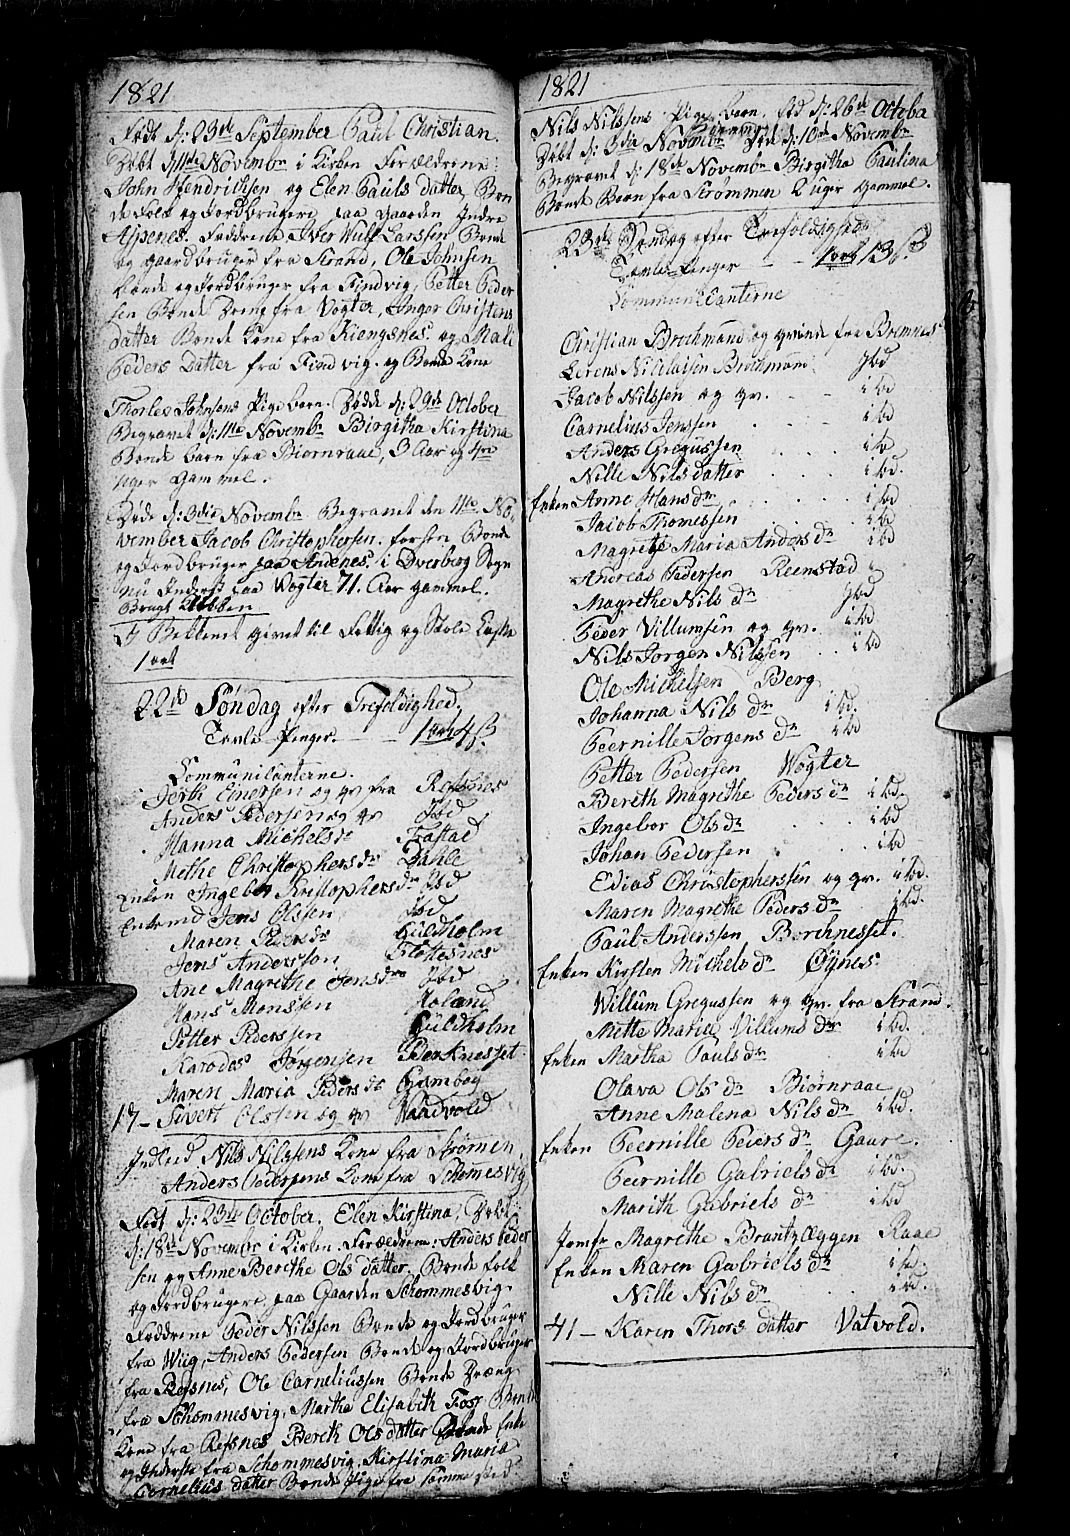 1821
Født d: 23de September Paul Christian.
Døbt d: 11te Novembr i Kirken Forældrene
John Hendrichsen og Elen Pauls datter, Bon
de Folk og Jordbrugere paa Gaarden Indre
Aasenes. Faddrene Iver Wulf Larssen Bonde
og gaardbruger fra Strand, Ole Johnsen
bonde og Jordbruger fra Findvig, Petter Peder
sen Bonde Dreng fra Vogter, Inger Christens
datter Bonde Kone fra Kiengsnes. og Mali
Peders Datter fra Findvig. og Bonde Kone
Thorles Johnsens Pige barn. Døde d: 29de October
Begravet d: 11te Novembr Birgitha Kirstina
Bonde barn fra Biørnraae, 3 Aar og 4re
uger Gammel.
Døde d: 3die Novembr Begravet den 11te No-
vember Jacob Christophersen. forhen Bonde
og Jordbruger paa Andenes. i Dverberg Sogn
nu Inderst paa Vogter 71. Aar gammel.
Brugt
I Bekkenet givet til Fattig og Skole Casse
1 ort
22de Søndag efter Trefoldighed.
Tavle Penger. 1 ort 4 ß.
Communicanterne.
Jertk Einersen og qv fra Refsnes
Anders Pedersen og qv Ibd
Hanna Michelsdr Fastad
Mette Christophersdr Dahle
Enken Ingebor Kristophersdr Ibd
Enkemd Jens Olssen Ibd
Maren Pedersdr Guldholm
Jens Anderssøn Flottesnes
Ane Magrethe Jensdr Ibd
Hans Monssen Holand
Petter Pederssen Guldholm
Karodes Jørgensen Berknesset
Maren Maria Peders dr Gambog
17 - Sivert Olssen og qv Vaadvold
Indleed. Nils Nilssens Kone fra Strømen,
Anders Pederssens Kone fra Schomesvig
Født d: 23de October. Elen Kirstina, Døbt
d: 18de Novembr i Kirken. Forældrene. Anders Peder
sen og Anne Berethe Ols datter. Bonde folk
og Jordbrugere paa Gaarden Schommesvig.
Faddrene Peder Nilssen Bonde og Jordbruger
fra Wiig, Anders Pedersen Bonde og Jordbruger
fra Refsnes, Ole Corneliussen Bonde Dræng
fra Schommesvig, Martha Elisabeth Foss Bonde
Kone fra Refsnes Bereth Ols datter Enke
og Inderste fra Schommesvig, Kirstina Maria
Cornelius datter Bonde Pige fra samme sted
1821
Nils Nilssens Pige barn. fød d: 26de Octobr
Døbt d: 3die Novembr Død d: 10de Novembr
Begravet d: 18de Novembr Birgitha Paulina
Bonde Barn fra Strommen 2 uger gammel.
23de Søndag efter Trefoldighed
Tavle Penger 1 ort 13 ß
Communicanterne
Christian Brochmand og qvinde fra Bremnes
Lorens Nicolaisen Brochmann Ibd
Jacob Nilssen og qv. ibd
Cornelius Jenssen ibd
Anders Gregussen ibd
Nille Nils datter ibd.
Enken Anne Hans dr ibd
Jacob Thomessen ibd
Magrethe Maria Anders dr ibd
Andreas Pedersen Reenstad
Magrethe Nils dr Ibd
Peder Villumsen og qv. ibd
Nils Jorgen Nilssen ibd
Ole Michelsen Berg
Johanna Nils dr ibd.
Peernille Jorgens dr ibd
Petter Pedersen Vogter
Bereth Magrethe Peders dr ibd.
Ingebor Ols dr ibd
Johan Pedersen ibd
Edias Christopherssen og qv. ibd.
Maren Magrethe Peders dr ibd.
Paul Anderssen Borchnesset.
Enken Kirsten Michels dr Øynes.
Willum Gregussen og qv. fra Strand.
Mette Maria Villums dr ibd.
Enken Martha Pauls dr ibd
Olava Ols dr Biørnraae
Anne Malena Nils dr ibd.
Enken Peernille Peiers dr Gaare.
Peernille Gabriels dr ibd.
Marith Gabriels dr ibd
Jomfr Magrethe Brantzæggen Raae
Enken Maren Gabriels dr ibd.
Nille Nils dr ibd.
41 - Karen Thors datter Vatvold.